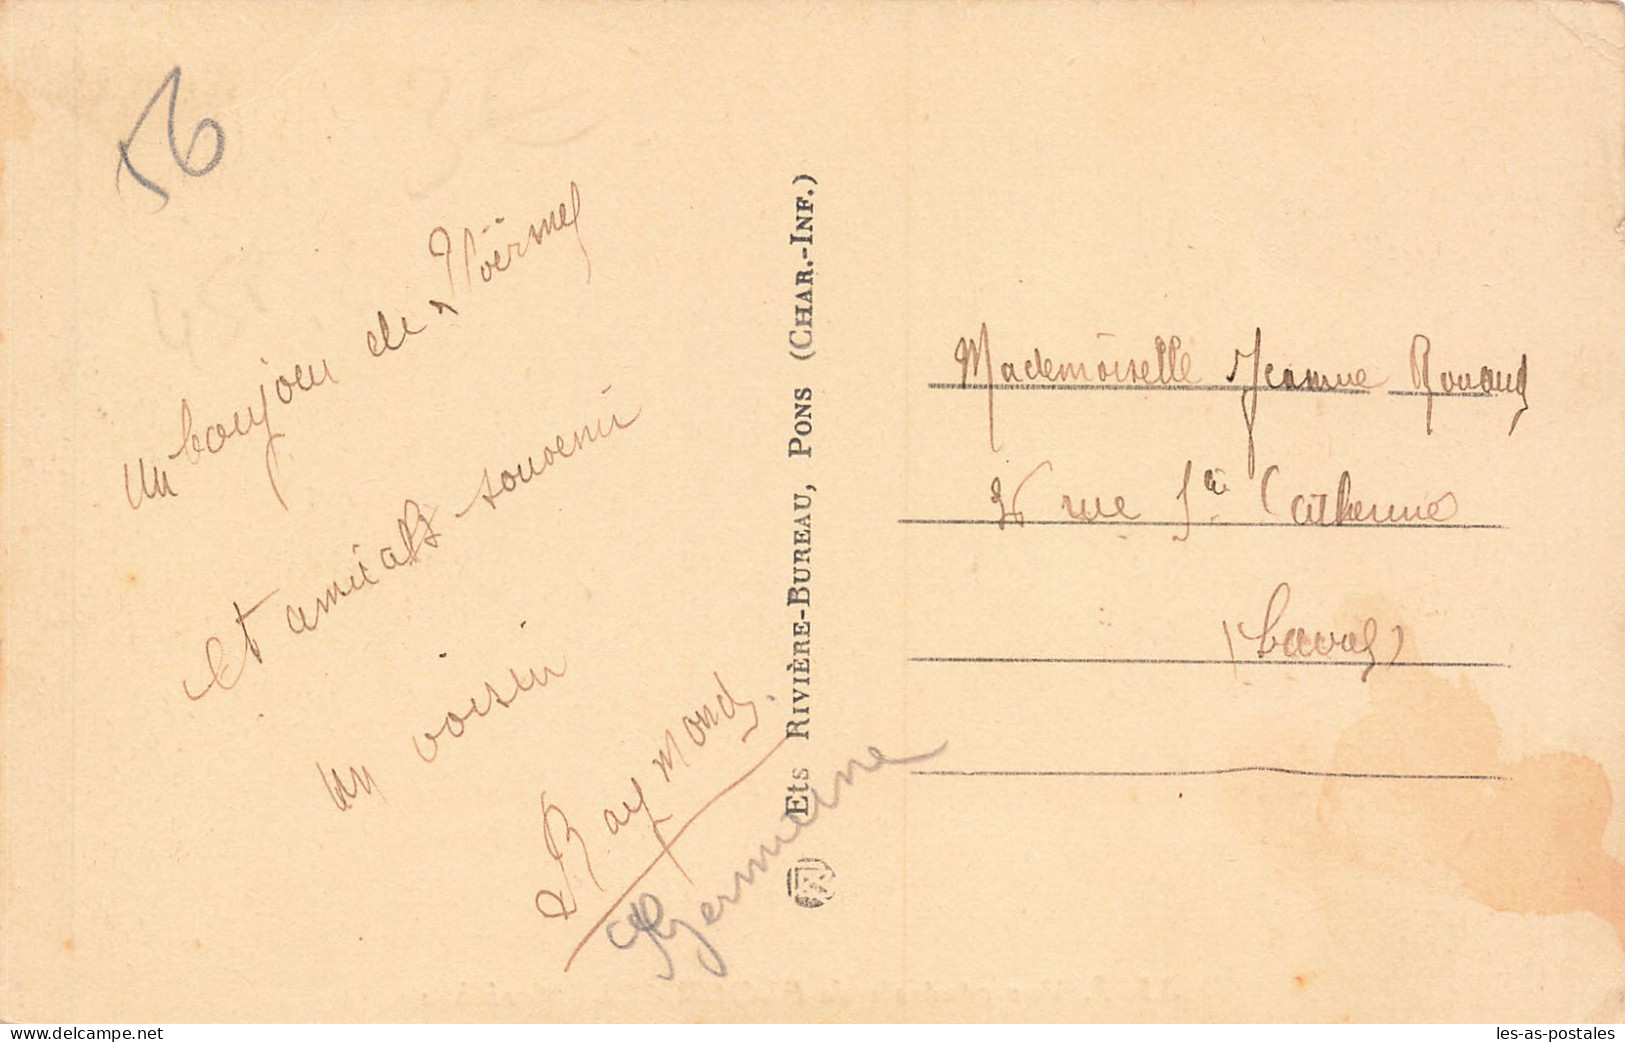 56
3€
Un bonjour de Ploërmel
et amicals souvenir
un voisin
Raymond.
Germaine
Ets RIVIÈRE-BUREAU, PONS (CHAR.-INF.)
Mademoiselle Jeanne Rouaud
36 rue Ste Catherine
(Laval)
delcampe.net
les-as-postales